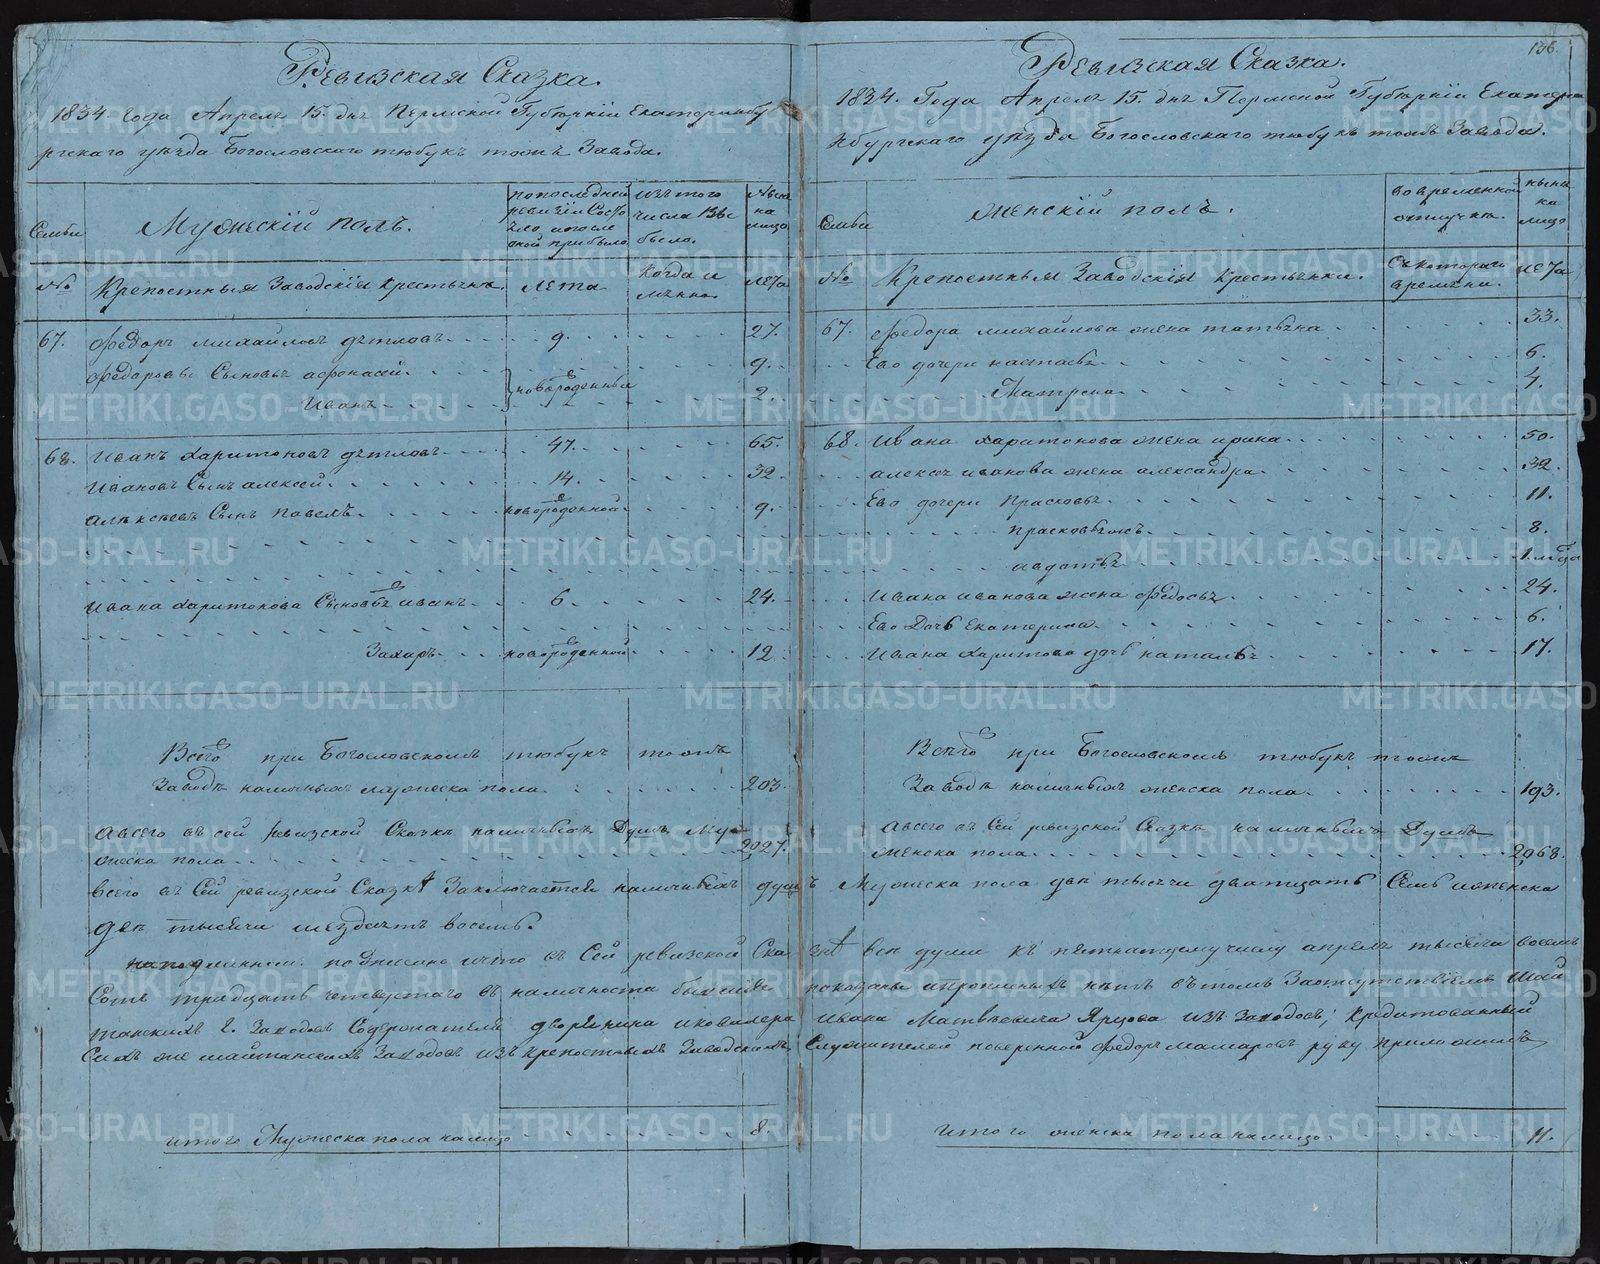 Ревизская Сказка.
1834. года Апреля 15. дня Пермской Губернии Екатеринбу
ргскаго уезда Богословскаго тюбукъ тожъ Завода.
Семьи
Мужескій полъ.
по последней ревизіи Состояло и после оной прибыло
изъ того числа выбыло.
Ныне на лицо
№
Крепостныя Заводскія Крестьяна.
Лета
когда и
лета
67. Федоръ михайловъ детловъ 9. 27.
Федоровы Сыновья афонасей. новорожденныя 9.
Иванъ 2.
68. Иванъ харитоновъ детловъ 47. 65.
Ивановъ Сынъ алексей. 14. 32.
алексеевъ Сынъ павелъ. новорожденной. 9.
Ивана харитонова Сыновья иванъ. 6. 24.
Захаръ. новорожденной. 12.
Всего при Богословскомъ тюбукъ тожъ
Заводе наличныхъ мужеска пола. 203.
а всего въ сей ревизской Сказке наличныхъ Душъ Му
жеска пола 2027.
136.
Ревизская Сказка.
1834. Года Апреля 15. дня Пермской Губерніи Екатери
нбургскаго уезда Богословскаго тюбукъ тожъ Завода.
Семьи
Женскій полъ.
во временной отлучке.
ныне на лицо
№
Крепостныя Заводскія крестьянки.
Съ котораго времени.
лета
67. Федора михайлова жена татьяна 33.
Его дочери настасья 6.
Матрена 4.
68. Ивана харитонова жена ирина 50.
алексея иванова жена александра. 32.
Его дочери Прасковья 11.
прасковья жъ 8.
авдотья 1. м-ца
Ивана иванова жена федосья 24.
Его Дочь Екатерина. 6.
Ивана харитова дочь наталья 17.
Всего при Богословскомъ тюбукъ тожъ
Заводе наличныхъ женска пола. 193.
а всего въ Сей ревизской Сказке наличныхъ Душъ
женска пола 2068.
всего въ Сей ревизской Сказке Заключается наличныхъ душъ Мужеска пола две тысячи дватцать Семь и женска
две тысячи шездесятъ восемь.
подписано что въ Сей ревизской Сказке все души къ пятнатцатому числу апреля тысяча восемь
Сотъ тридцать четвертаго въ наличности бывшие показаны и прописныхъ нетъ въ томъ За отсутствіемъ Шай
танскихъ Г. Заводовъ Содержателя дворянина и кавалера Ивана Матвеевича Ярцова изъ Заводовъ; Кредитованный
Сихъ же шайтанскихъ Заводовъ изъ крепостныхъ Заводскихъ Служителей поверенной Федоръ макаровъ руку приложилъ
итого Мужеска пола налицо 8.
Итого женска пола налицо. 11.
METRIKI.GASO-URAL.RU